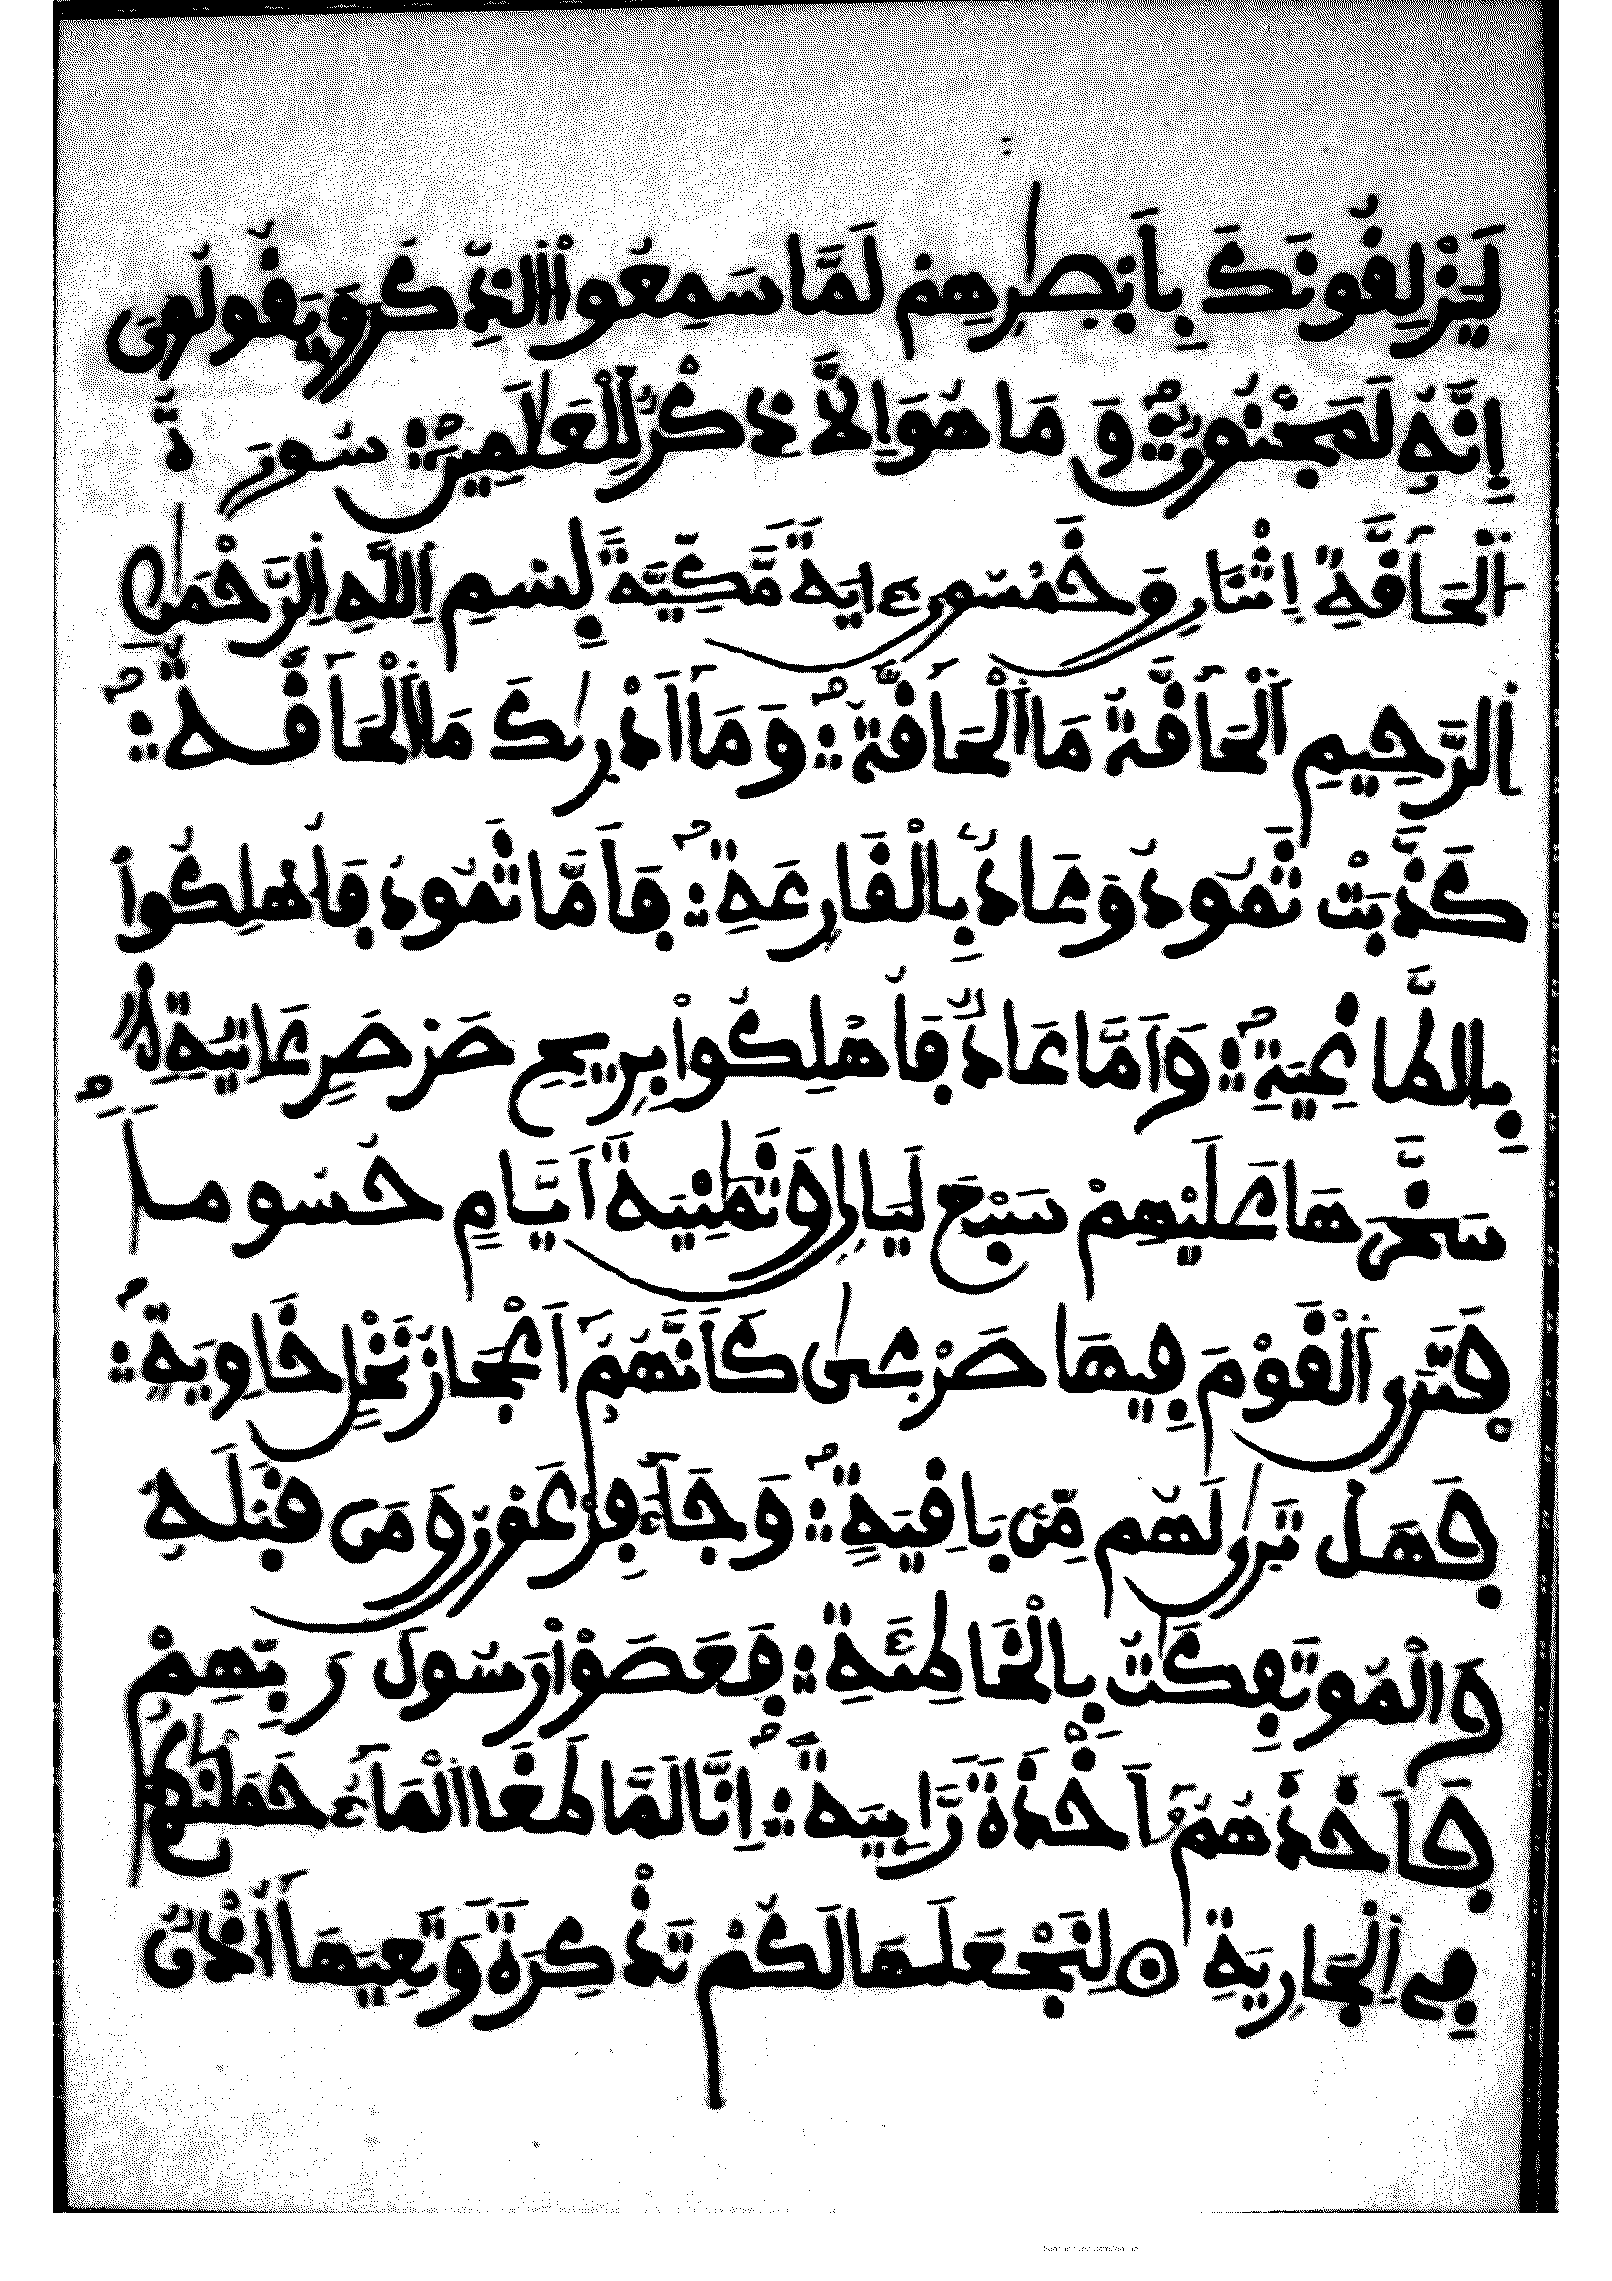 لَيَزْلِفُونَكَ بِأَبْصٰرِهِمْ لَمَّا سَمِعُوا الذِّكْرَ وَيَقُولُونَ
إِنَّهُۥ لَمَجْنُونٌ وَمَا هُوَ إِلَّا ذِكْرٌ لِّلْعَٰلَمِينَ سورة
الْحَاقَّةِ اِثْنَان وَخَمْسُون ءَايَةً مَّكِّيَّةً بِسْمِ اللَّهِ الرَّحْمَٰنِ
الرَّحِيمِ الْحَاقَّةُ مَا الْحَاقَّةُ وَمَا أَدْرٰىكَ مَا الْحَاقَّةُ
كَذَّبَتْ ثَمُودُ وَعَادٌ بِالْقَارِعَةِ فَأَمَّا ثَمُودُ فَأُهْلِكُوا
بِالطَّاغِيَةِ وَأَمَّا عَادٌ فَأُهْلِكُوا بِرِيحٍ صَرْصَرٍ عَاتِيَةٍ
سَخَّرَهَا عَلَيْهِمْ سَبْعَ لَيَالٍ وَثَمَٰنِيَةَ أَيَّامٍ حُسُوما
فَتَرَى الْقَوْمَ فِيهَا صَرْعَىٰ كَأَنَّهُمُۥ أَعْجَازُ نَخْلٍ خَاوِيَةٍ
فَهَلْ تَرَىٰ لَهُم مِّنۢ بَاقِيَةٍ وَجَآءَ فِرْعَوْنُ وَمَن قَبْلَهُۥ
وَالْمُوتَفِكَٰتُ بِالْخَاطِئَةِ فَعَصَوْا رَسُولَ رَبِّهِمْ
فَأَخَذَهُمُۥٓ أَخْذَةً رَّابِيَةً اِنَّا لَمَّا طَغَا الْمَآءُ حَمَلْنَٰكُمْ
فِي الْجَارِيَةِ لِنَجْعَلَهَا لَكُمْ تَذْكِرَةً وَتَعِيَهَا أُذُنٌ